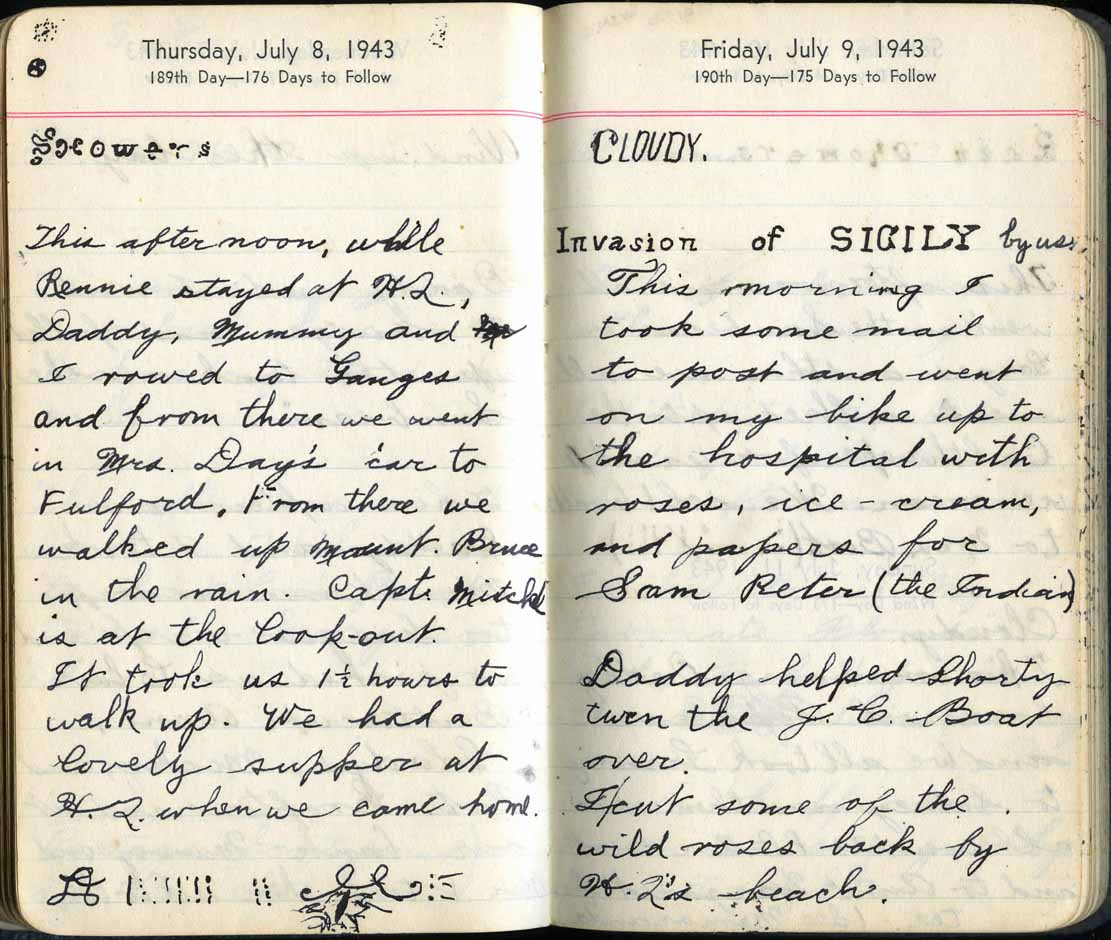 Thursday, July 8, 1943
189th Day—176 Days to Follow
Showers
This afternoon, while
Rennie stayed at H.Q.,
Daddy, Mummy and
I rowed to Ganges
and from there we went
in Mrs. Day's car to
Fulford. From there we
walked up Mount. Bruce
in the rain. Capt. Mitchel
is at the look-out.
It took us 1½ hours to
walk up. We had a
lovely supper at
H.Q. when we came home.
Friday, July 9, 1943
190th Day—175 Days to Follow
CLOUDY.
Invasion of SICILY by us.
This morning I
took some mail
to post and went
on my bike up to
the hospital with
roses, ice-cream,
and papers for
Sam Peter (the Indian)
Daddy helped Shorty
turn the J. C. Boat
over.
I cut some of the
wild roses back by
H.Q's beach.